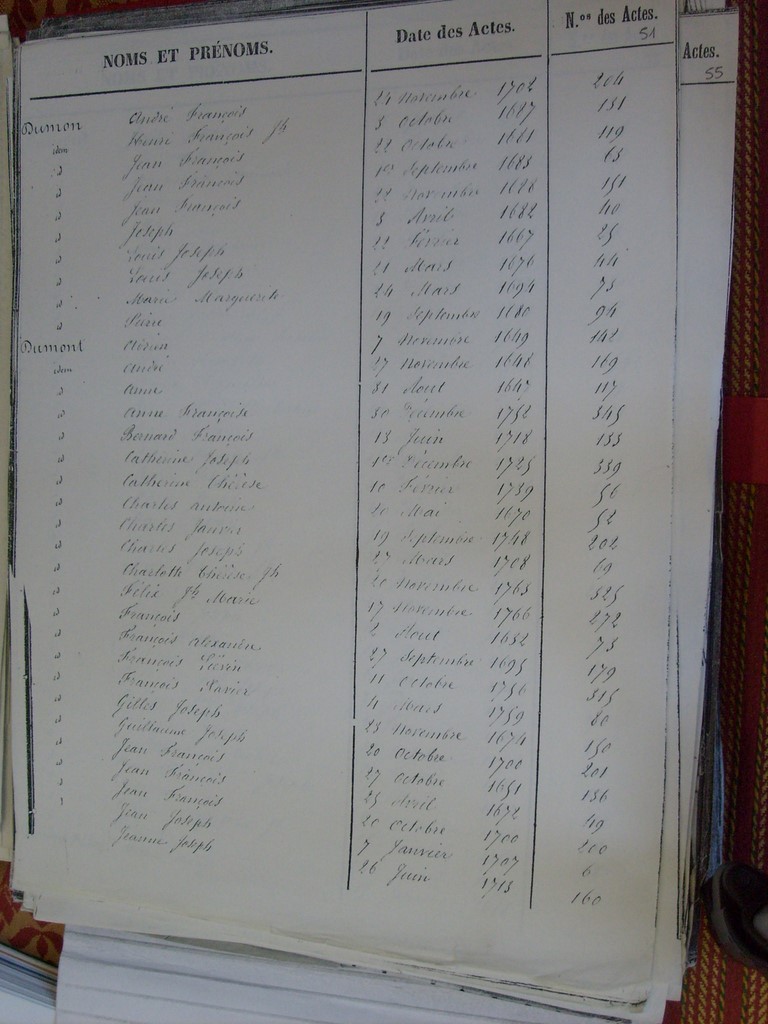 NOMS ET PRÉNOMS. Date des Actes. N.os des Actes. 51
Actes. 55
Dumon André François 24 Novembre 1702 204
idem Henri François Jh 3 Octobre 1687 131
id Jean François 22 Octobre 1681 119
id Jean François 1er Septembre 1683 63
id Jean François 22 Novembre 1688 151
id Joseph 3 Avril 1682 40
id Louis Joseph 22 Février 1667 25
id Louis Joseph 21 Mars 1676 44
id Marie Marguerite 24 Mars 1694 73
id 19 Septembre 1680 94
Dumont Adrien 7 Novembre 1649 142
idem André 27 Novembre 1648 169
id Anne 31 Aout 1647 117
id Anne Françoise 30 Décembre 1752 345
id Bernard François 13 Juin 1718 133
id Catherine Joseph 1er Décembre 1725 339
id Catherine Thérèse 10 Février 1739 56
id Charles Antoine 20 Mai 1670 52
id Charles Janvier 19 Septembre 1748 202
id Charles Joseph 27 Mars 1708 69
id Charlotte Thérèse Jh 20 Novembre 1763 325
id Félix Jh Marie 17 Novembre 1766 272
id François 2 Aout 1652 73
id François Alexandre 27 Septembre 1695 179
id François Liévin 11 Octobre 1756 315
id François Xavier 4 Mars 1759 80
id Gilles Joseph 23 Novembre 1674 150
id Guillaume Joseph 20 Octobre 1700 201
id Jean François 27 Octobre 1651 136
id Jean François 25 Avril 1672 49
id Jean François 20 Octobre 1700 200
id Jean Joseph 7 Janvier 1707 6
Jeanne Joseph 26 Juin 1713 160